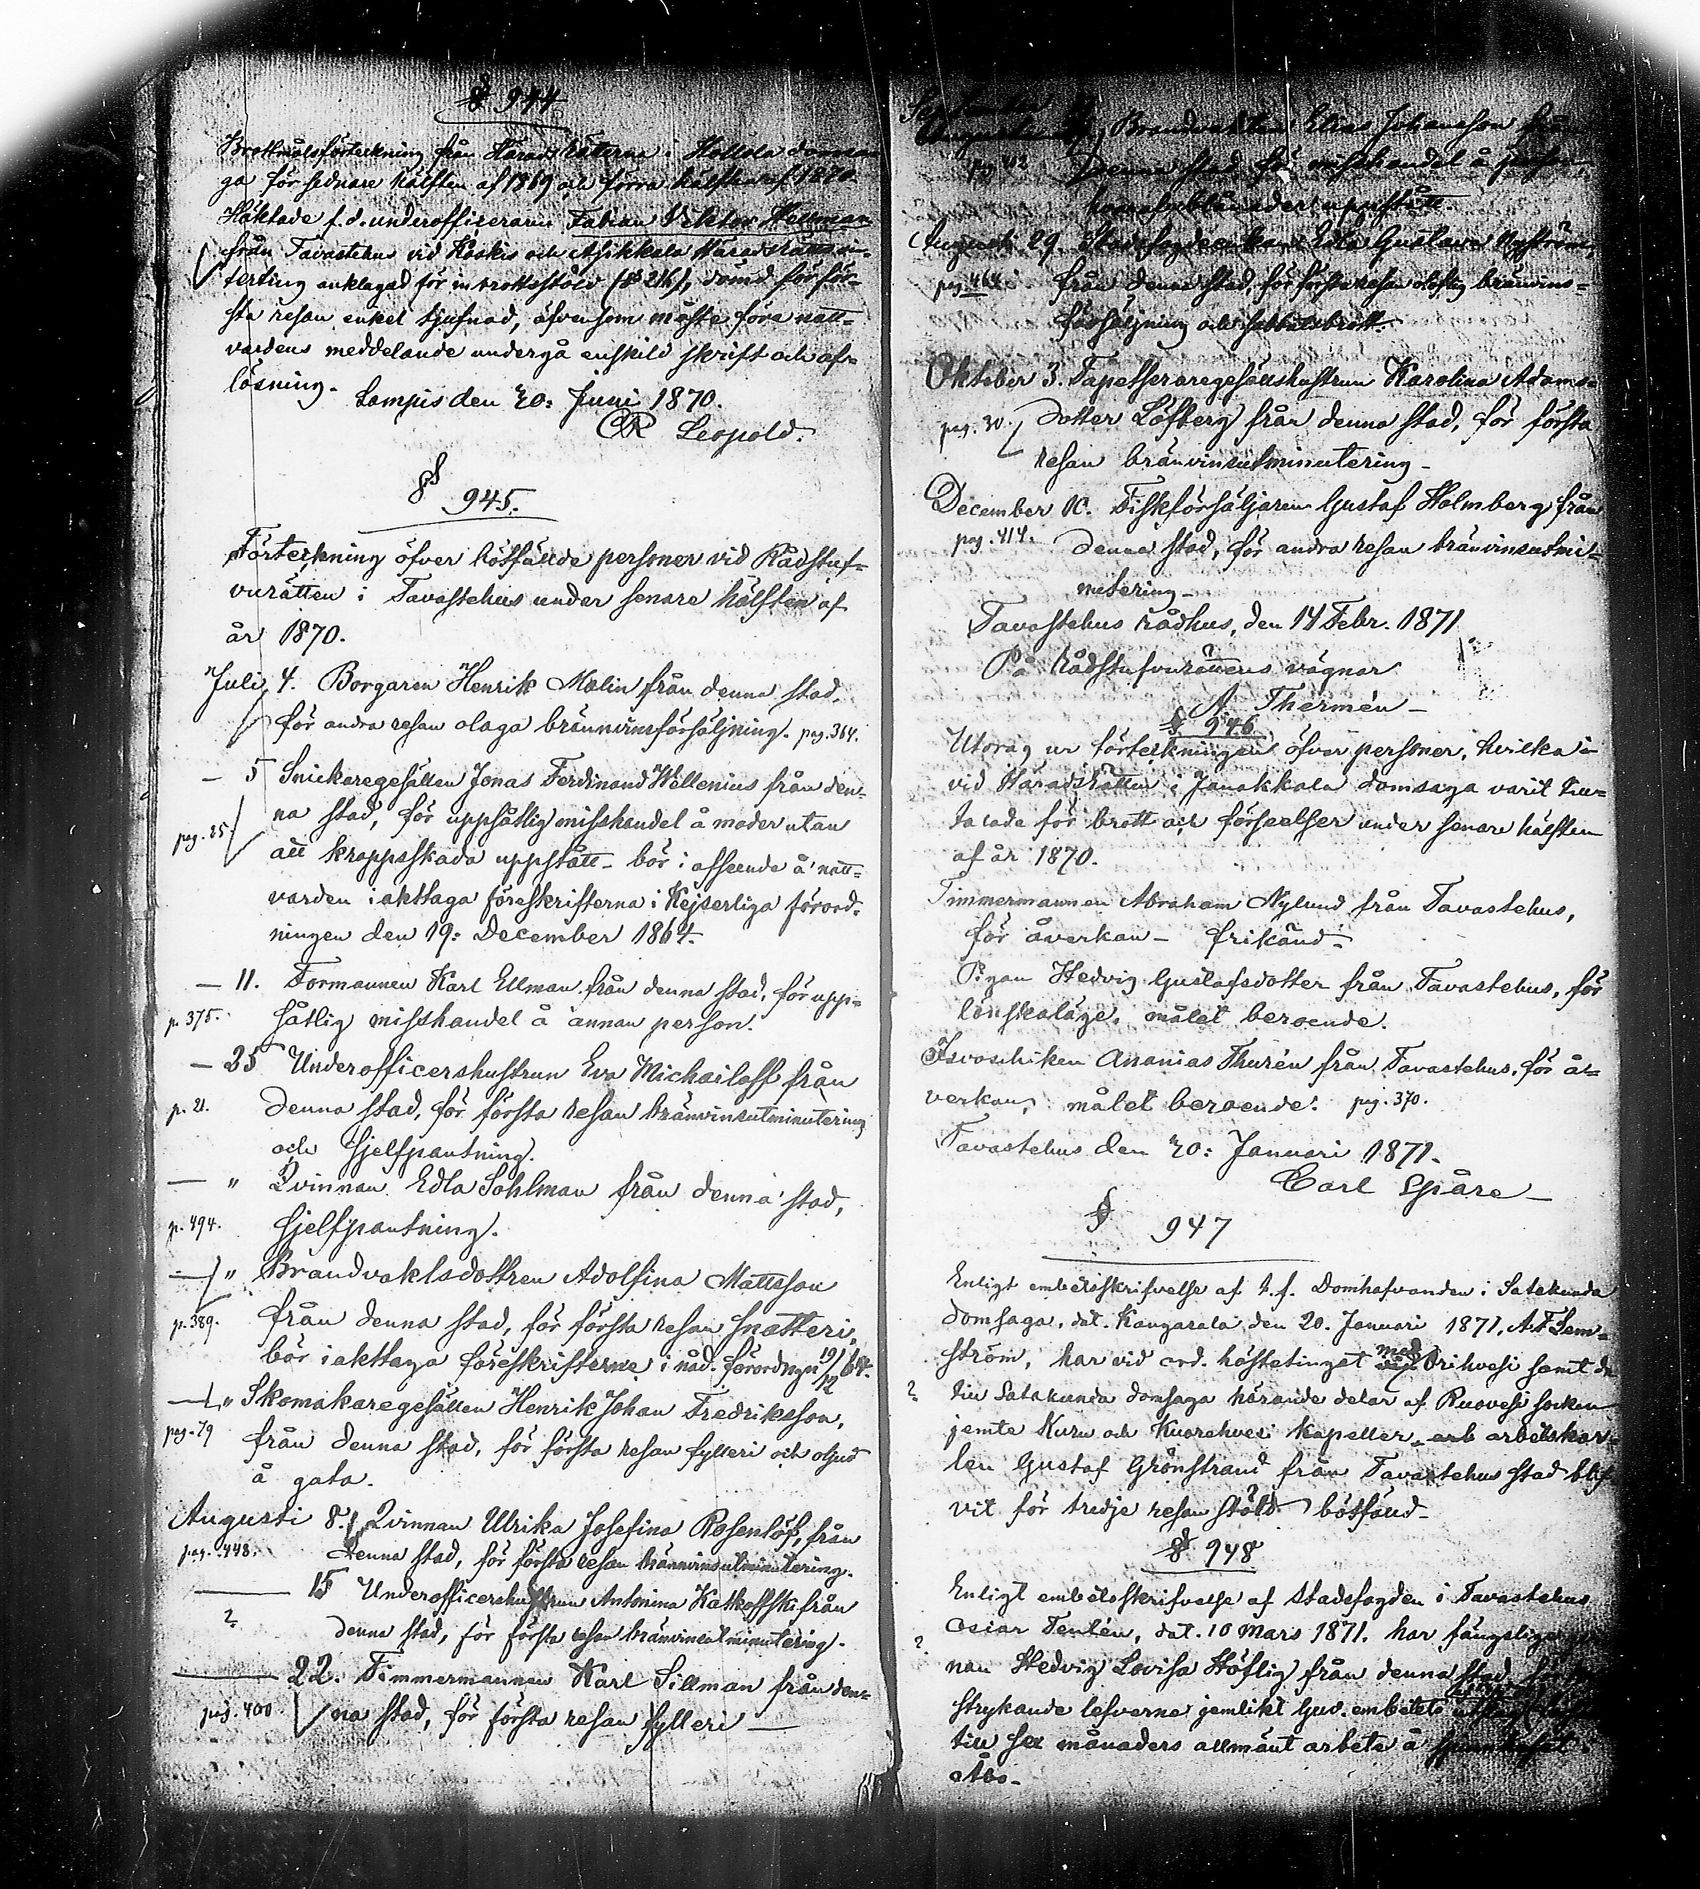 § 944
Brottmålsförteckning från Häradsrätterna i Hollola domsa-
ga för sednare hälften af 1869 och förra hälften af 1870.
Häktade f.d. underofficeraren Fabian Viktor Hellman
från Tavastehus vid Koskis och Asikkala Häradsrätts vin-
terting anklagad för inbrottsstöld (§ 216), dömd för för-
sta resan enkel tjufnad, äfvensom måste före natt-
vardens meddelande undergå enskild skrift och af-
lösning.
Lampis den 20: Juni 1870.
CR Leopold.
§ 945.
Förteckning öfver bötfällde personer vid Rådstuf-
vurätten i Tavastehus under senare hälften af
år 1870.
Juli 4. Borgaren Henrik Malin från denna stad,
för andra resan olaga bränvinsförsäljning. pag. 364.
— 5 Snickaregesällen Jonas Ferdinand Wellenius från den-
na stad, för uppsåtlig misshandel å moder utan
pag. 25
att kroppsskada uppstått - bör i afseende å natt-
varden iakttaga föreskrifterna i Kejserliga förord-
ningen den 19: December 1864.
— 11. Formannen Karl Ellman från denna stad, för upp-
p. 375. såtlig misshandel å annan person.
— 25 Underofficershustrun Eva Michailoff från
p. 21. denna stad, för första resan bränvinsutminutering
och sjelfpantning.
— " Qvinnan Edla Sohlman från denna stad,
p. 494. sjelfpantning.
— " Brandvaktsdottren Adolfina Mattsson
p. 389. från denna stad, för första resan snatteri,
bör iakttaga föreskrifterne i nåd. förordngn 19/12 64.
— " Skomakaregesällen Henrik Johan Fredriksson,
pag. 79 från denna stad, för första resan fylleri och oljud
å gata.
Augusti 8. Qvinnan Ulrika Josefina Rosenlöf, från
pag. 448. denna stad, för första resan bränvinsutminutering.
— 15 Underofficershustrun Antonina Katkoffski från
? denna stad, för första resan bränvinsutminutering.
— 22. Timmermannen Karl Sillman från den-
pag. 400 na stad, för första resan fylleri —
Brandvakten Elias Johansson från
denna stad, för misshandel å person,
hvaraf blånader uppstått.
Augusti 29. Edla Gustava Nyström,
pag. 464 från denna stad, för första resan oloflig bränvins-
försäljning och sabbatsbrott.
Oktober 3. Tapetseraregesällshustrun Karolina Adams-
pag. 30. dotter Löfberg från denna stad, för första
resan bränvinsutminutering -
December 10. Fiskförsäljaren Gustaf Holmberg från
pag. 414. denna stad, för andra resan bränvinsutmi-
nutering -
Tavastehus rådhus, den 14 Febr. 1871
På Rådstufvurättens vägnar
A Thermén -
§ 946
Utdrag ur förteckningen öfver personer, hvilka
vid Häradsrätten i Janakkala domsaga varit till-
talade för brott och förseelser under senare hälften
af år 1870.
Timmermannen Abraham Nylund från Tavastehus,
för åverkan - frikänd.
Pigan Hedvig Gustafsdotter från Tavastehus, för
lönskaläge, målet beroende.
Isvoschiken Ananias Thurén från Tavastehus, för å-
verkan, målet beroende. pag. 370.
Tavastehus den 20: Januari 1871.
Carl Spåre -
§ 947
Enligt embetsskrifvelse af t.f. Domhafvanden i Satakunda
domsaga, dat. Kangasala den 20. Januari 1871, A.F. Sem-
ström, har vid ord. höstetinget med Orihvesi samt de
? till Satakunda domsaga hörande delar af Ruovesi socken
jemte Kuru och Kuorehvesi kapeller, arb arbetskar-
len Gustaf Grönstrand från Tavastehus stad blif-
vit för tredje resan stöld bötfälld -
§ 948
Enligt embetsskrifvelse af Stadsfogden i Tavastehus
Oscar Tentén, dat. 10 Mars 1871. har fängsliga
? nan Hedvig Lovisa Höflig från denna stad för
strykande lefverne jemlikt Guv. embetets
till sex månaders allmänt arbete å spinnhuset i
Åbo -